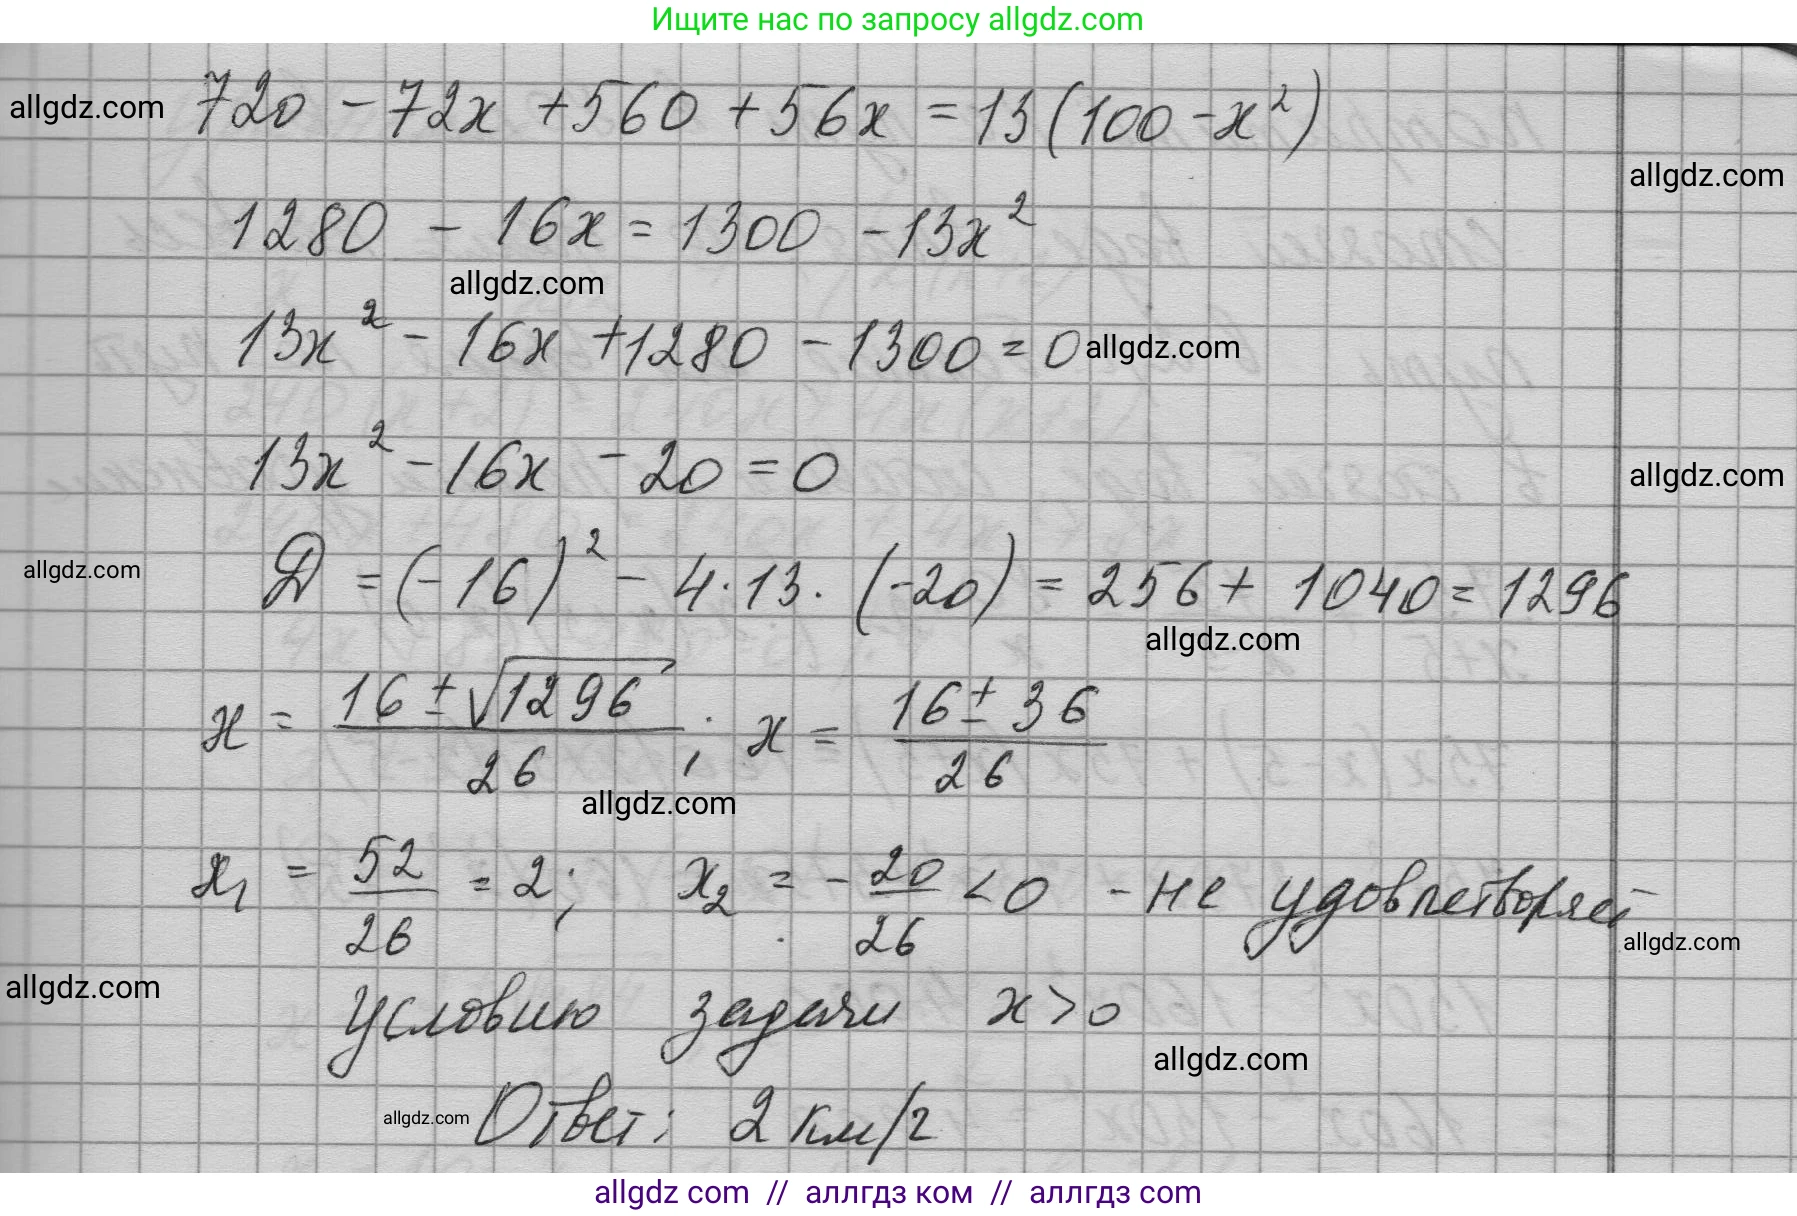 Ищите нас по запросу allgdz.com
allgdz.com
720 - 72x + 560 + 56x = 13(100 - x²)
allgdz.com
1280 - 16x = 1300 - 13x²
allgdz.com
13x² - 16x + 1280 - 1300 = 0
allgdz.com
13x² - 16x - 20 = 0
allgdz.com
allgdz.com
D = (-16)² - 4 · 13 · (-20) = 256 + 1040 = 1296
allgdz.com
x = (16 ± √1296)/26 ; x = (16 ± 36)/26
allgdz.com
x₁ = 52/26 = 2; x₂ = - 20/26 < 0 - не удовлетворяет
allgdz.com
allgdz.com
условию задачи x > 0
allgdz.com
allgdz.com
Ответ: 2 км/г
allgdz com // аллгдз ком // аллгдз com